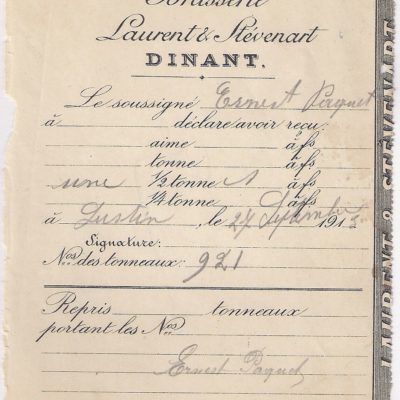 Brasserie
Laurent & Stévenart
DINANT.
Le soussigné Ernest Paquet
à déclare avoir reçu:
aime à fs
tonne à fs
une ½ tonne à fs
¼ tonne à fs
à Lustin, le 27 Septembre 1913
Signature:
Nos des tonneaux: 921
Repris tonneaux
portant les Nos
Ernest Paquet
LAURENT & STÉVENART